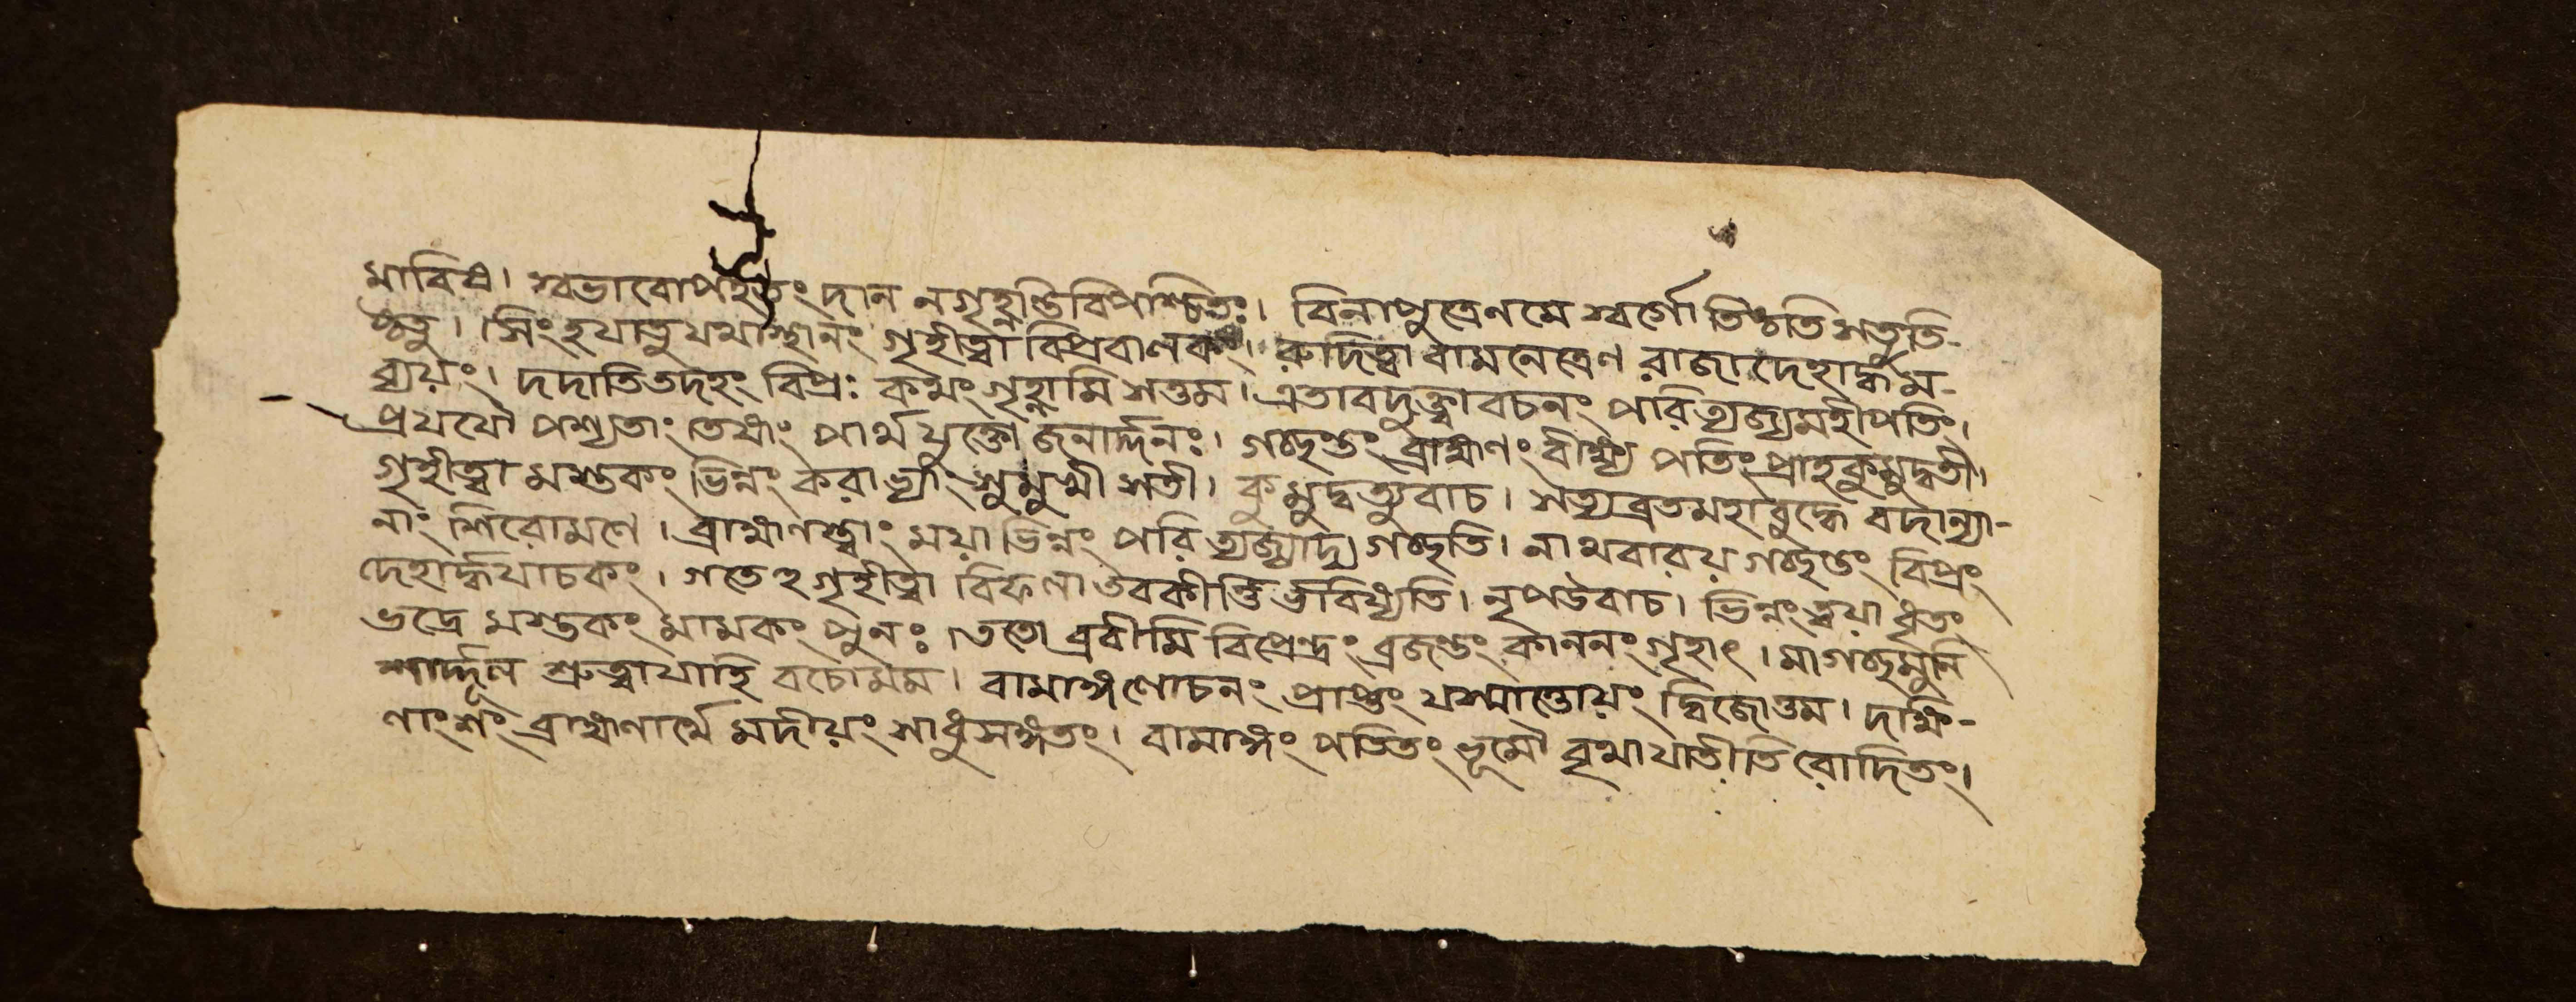 মাবিধ। স্বভাবোপহতং দান নগৃহ্ণন্তিবিপশ্চিতঃ। বিনাপুত্রেণমে স্বর্গো তিষ্ঠতি সতুতি-
ষ্ঠতু। সিংহযাতুযথাস্থানং গৃহীত্বা বিপ্রবালকং। রুদিত্বা বামনেত্রেণ রাজাদেহার্দ্ধম-
ব্যয়ং। দদাতিতদহং বিপ্রঃ কথংগৃহ্ণামি সত্তম। এতাবদুক্ত্বাবচনং পরিত্যজ্যমহীপতিং।
প্রযযৌ পশ্যতাং তেষাং পার্থযুক্তো জনার্দ্দনঃ। গচ্ছন্তং ব্রাহ্মণং বীক্ষ্য পতিংপ্রাহকুমুদ্বতী।
গৃহীত্বা মস্তকং ভিন্নং করাভ্যাং সুমুখী সতী। কুমুদ্বত্যুবাচ। সত্যব্রতমহাবুদ্ধে বদান্যা-
নাং শিরোমণে। ব্রাহ্মণস্ত্বাং ময়াভিন্নং পরিত্যজ্যাদ্য গচ্ছতি। নাথবারয় গচ্ছন্তং বিপ্রং
দেহার্দ্ধযাচকং। গতেহগৃহীত্বা বিফলা তবকীর্ত্তির্ভবিষ্যতি। নৃপউবাচ। ভিন্নংত্বয়া ধৃতং
ভদ্রে মস্তকং মামকং পুনঃ। ততো ব্রবীমি বিপ্রেন্দ্রং ব্রজন্তং কাননং গৃহাৎ। মাগচ্ছমুনি
শার্দ্দূল শ্রুত্বাযাহি বচোমম। বামাঙ্গলোচনং প্রাপ্তং যস্মাত্তোয়ং দ্বিজোত্তম। দক্ষি-
ণাংশং ব্রাহ্মণার্থে মদীয়ং সাধুসঙ্গতং। বামাঙ্গং পতিতং ভূমৌ বৃথাযাতীতি রোদিতং।